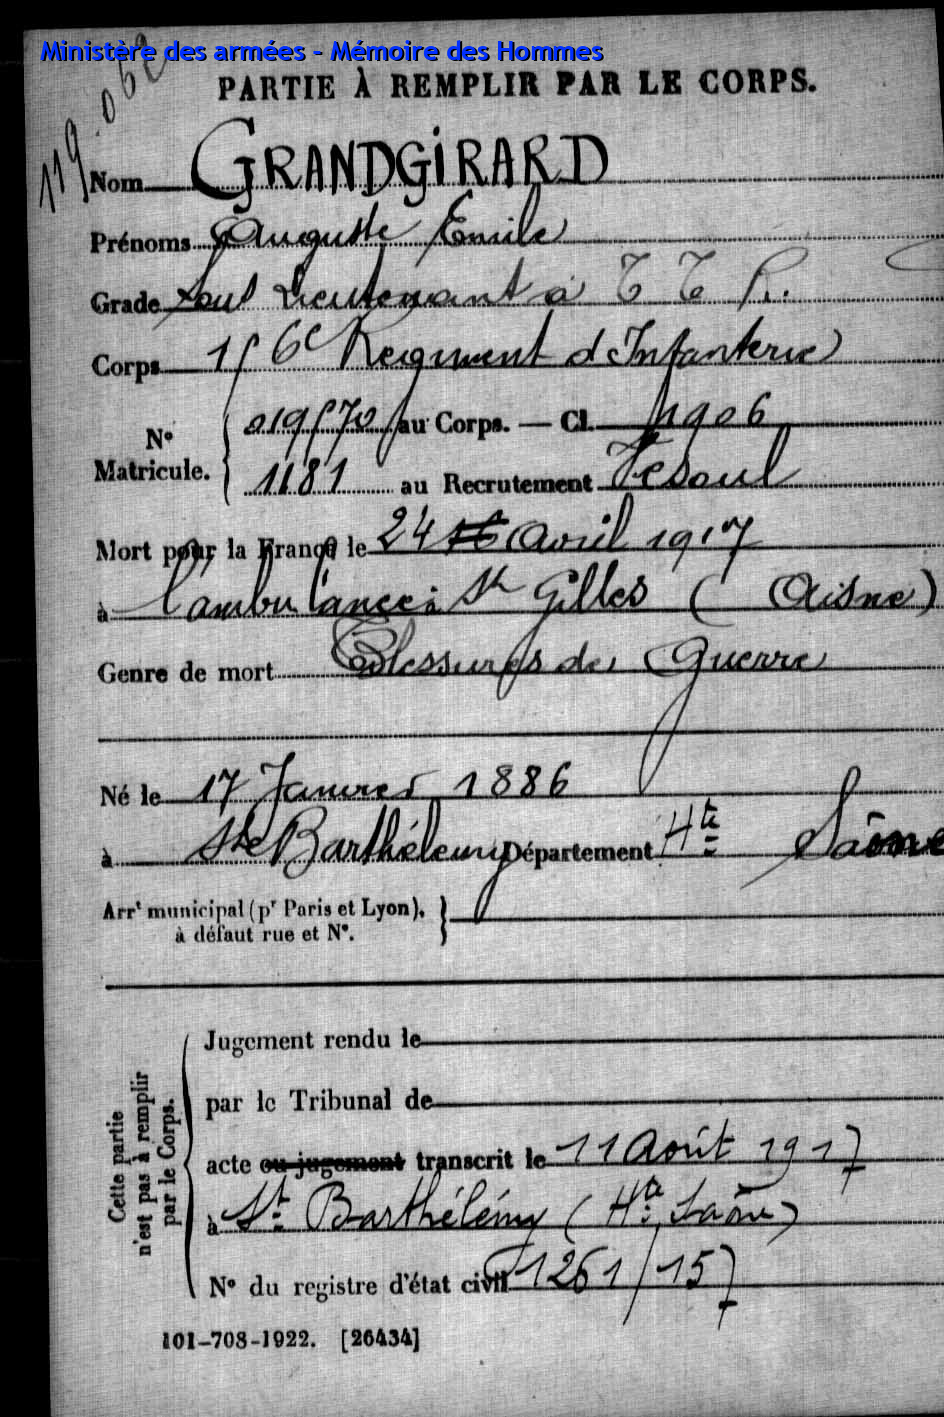 Ministère des armées - Mémoire des Hommes
119.062
PARTIE À REMPLIR PAR LE CORPS.
Nom GRANDGIRARD
Prénoms Auguste Emile
Grade Sous Lieutenant à T T R.
Corps 156e Régiment d'Infanterie
N° Matricule. 019570 au Corps. — Cl. 1906
1181 au Recrutement Vesoul
Mort pour la France le 24 16 Avril 1917
à l'ambulance St Gilles (Aisne)
Genre de mort Blessures de Guerre
Né le 17 Janvier 1886
à Ste Barthélemy Département Hte Saône
Arrt municipal (pr Paris et Lyon),
à défaut rue et N°.
Cette partie n'est pas à remplir par le Corps.
Jugement rendu le
par le Tribunal de
acte ou jugement transcrit le 11 Août 1917
à St Barthélémy (Hte Saône)
N° du registre d'état civil 1261/157
101-708-1922. [26434]